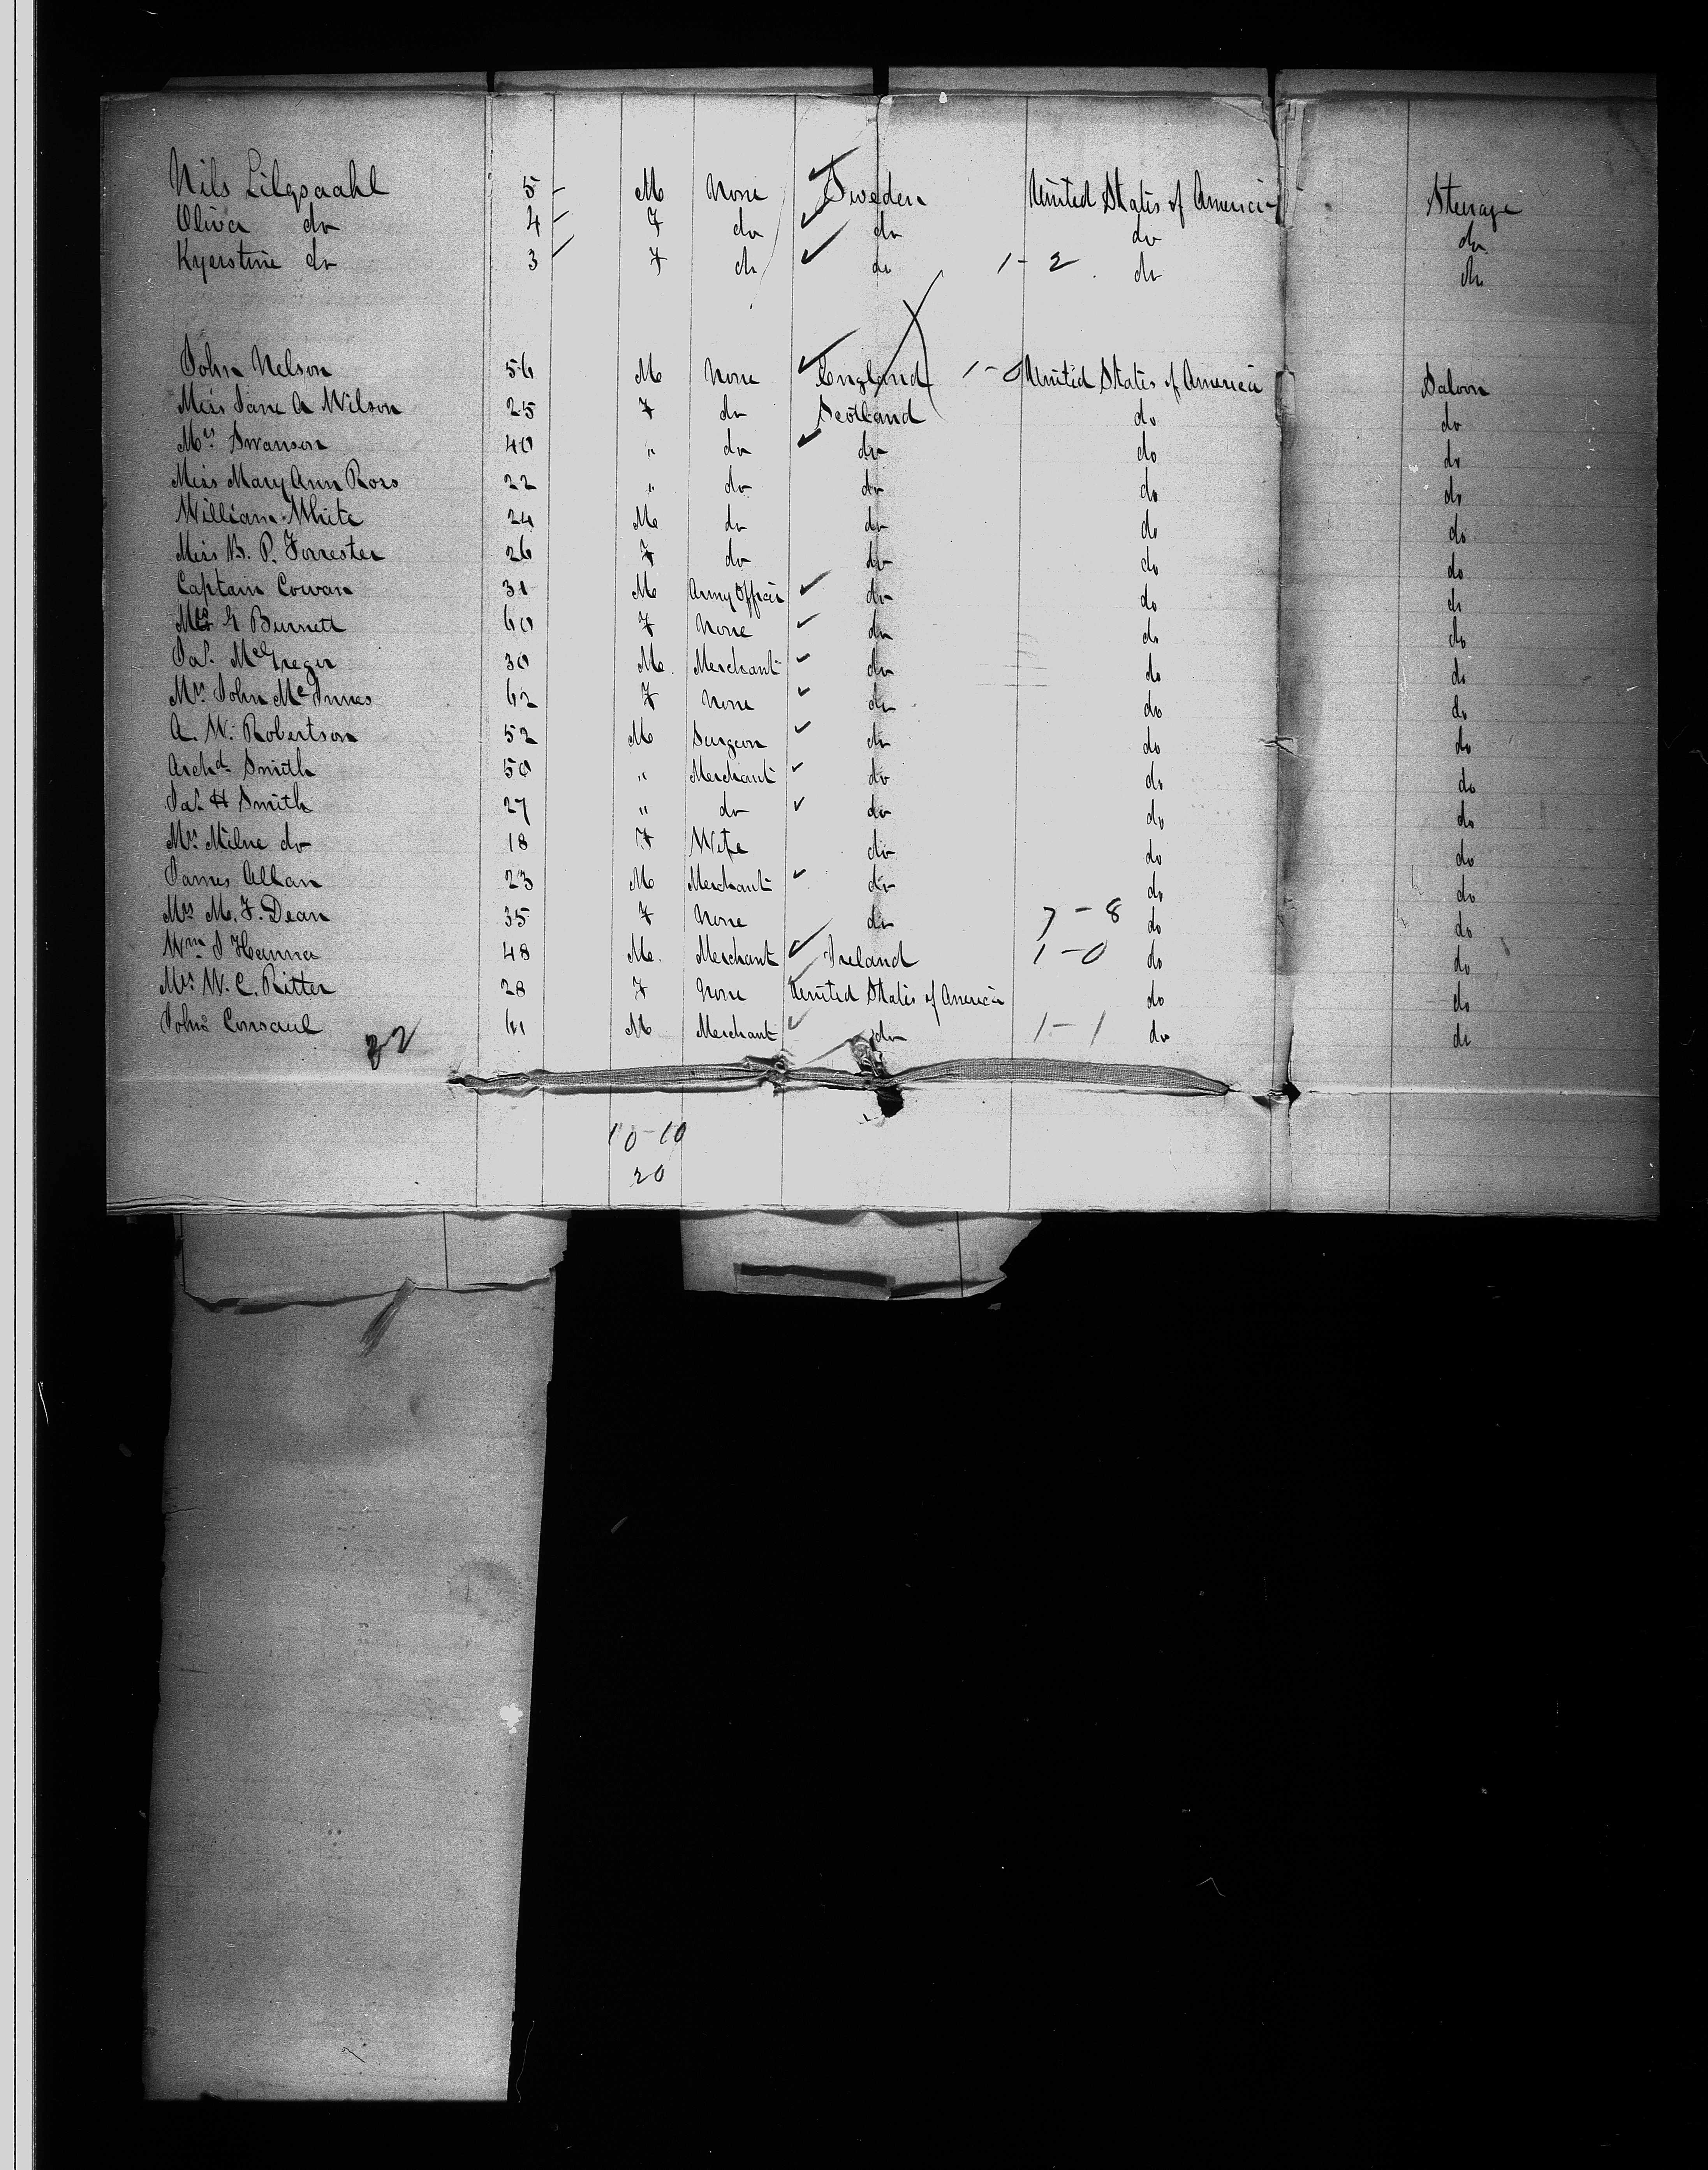 Nils Lilgsaahl 5 M None Sweden United States of America Steerage
Oliva do 4 F do do do do
Kyerstine do 3 F do do 1-2 do do
John Nelson 56 M None England 1-0 United States of America Saloon
Miss Jane A Wilson 25 F do Scotland do do
Mrs Swanson 40 " do do do do
Miss Mary Ann Ross 22 " do do do do
William White 24 M do do do do
Miss B. P. Forrester 26 F do do do do
Captain Cowan 31 M Army Officer do do do
Mrs G Burnett 60 F None do do do
Jas. McGregor 30 M. Merchant do do do
Mrs John McInnes 62 F None do do do
A. W. Robertson 52 M Surgeon do do do
Archd. Smith 50 " Merchant do do do
Jas. H Smith 27 " do do do do
Mrs Milne do 18 F Wife do do do
James Allan 23 M Merchant do do do
Mrs M. F. Dean 35 F None do 7-8 do do
Wm J Hanna 48 M. Merchant Ireland 1-0 do do
Mrs W. C. Ritter 28 F None United States of America do do
John Consaul 61 M Merchant do 1-1 do do
22
10-10
20